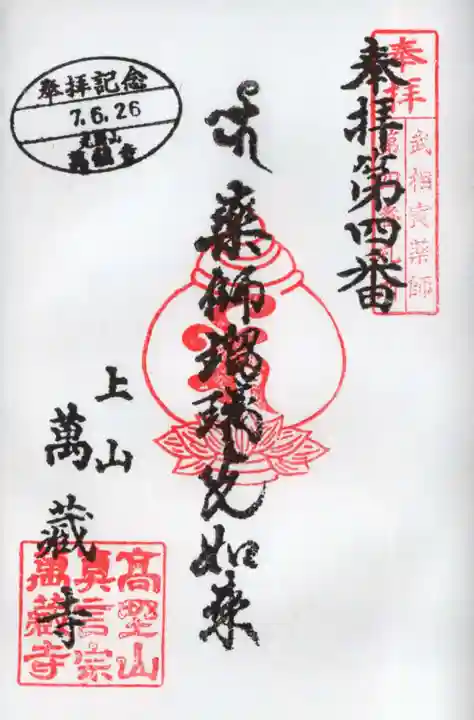 奉拝
武相寅薬師
奉拝第四番
薬師瑠璃光如来
上山
萬蔵寺
高野山
真言宗
萬蔵寺
奉拝記念
7.6.26
萬蔵寺